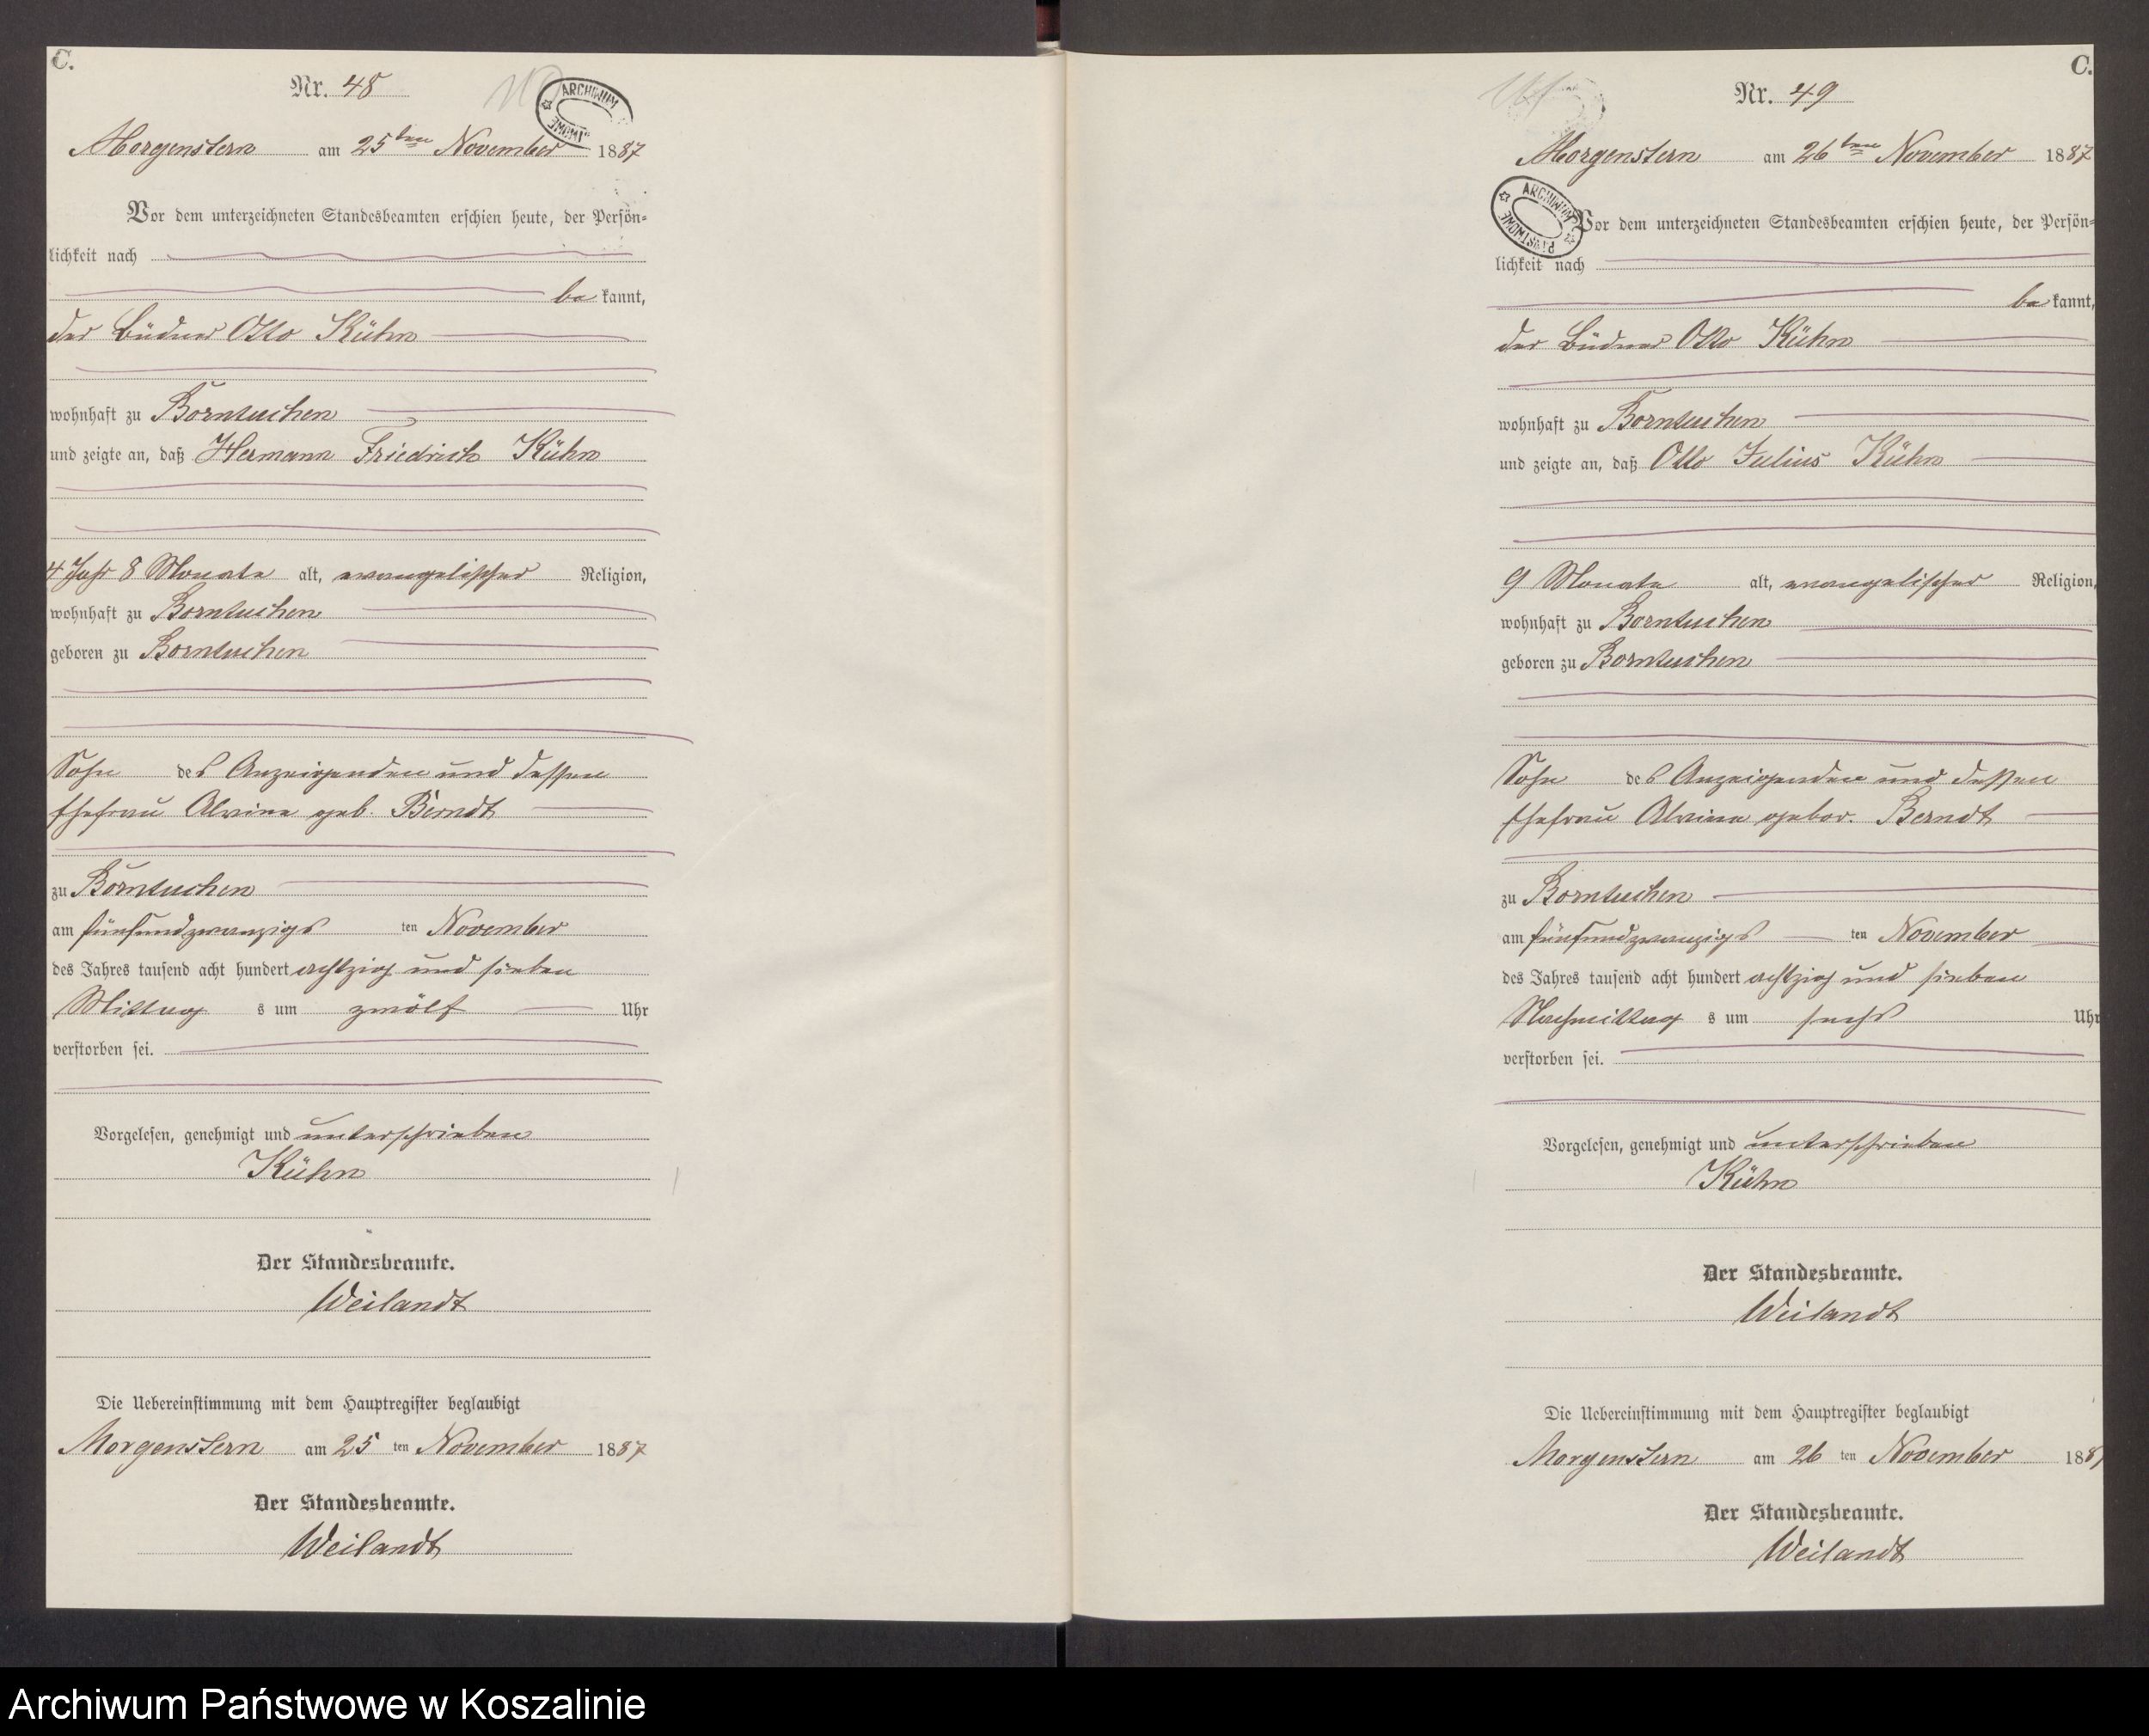 C.
Nr. 48
ARCHIWUM
Morgenstern am 25ten November 1887
Vor dem unterzeichneten Standesbeamten erschien heute, der Persön-
lichkeit nach
be kannt,
der Büdner Otto Kühn
wohnhaft zu Borntuchen
und zeigte an, daß Hermann Friedrich Kühn
4 Jahr 8 Monate alt, evangelischer Religion,
wohnhaft zu Borntuchen
geboren zu Borntuchen
Sohn des Anzeigenden und dessen
Ehefrau Alwine geb. Berndt
zu Borntuchen
am fünfundzwanzigs ten November
des Jahres tausend acht hundert achtzig und sieben
Mittag s um zwölf Uhr
verstorben sei.
Vorgelesen, genehmigt und unterschrieben
Kühn
Der Standesbeamte.
Weilandt
Die Uebereinstimmung mit dem Hauptregister beglaubigt
Morgenstern am 25 ten November 1887
Der Standesbeamte.
Weilandt
C.
Nr. 49
Morgenstern am 26ten November 1887
ARCHIWUM PAŃSTWOWE
Vor dem unterzeichneten Standesbeamten erschien heute, der Persön-
lichkeit nach
be kannt,
der Büdner Otto Kühn
wohnhaft zu Borntuchen
und zeigte an, daß Otto Julius Kühn
9 Monate alt, evangelischer Religion,
wohnhaft zu Borntuchen
geboren zu Borntuchen
Sohn des Anzeigenden und dessen
Ehefrau Alwine gebor. Berndt
zu Borntuchen
am fünfundzwanzigs ten November
des Jahres tausend acht hundert achtzig und sieben
Nachmittag s um sechs Uhr
verstorben sei.
Vorgelesen, genehmigt und unterschrieben
Kühn
Der Standesbeamte.
Weilandt
Die Uebereinstimmung mit dem Hauptregister beglaubigt
Morgenstern am 26 ten November 188
Der Standesbeamte.
Weilandt
Archiwum Państwowe w Koszalinie